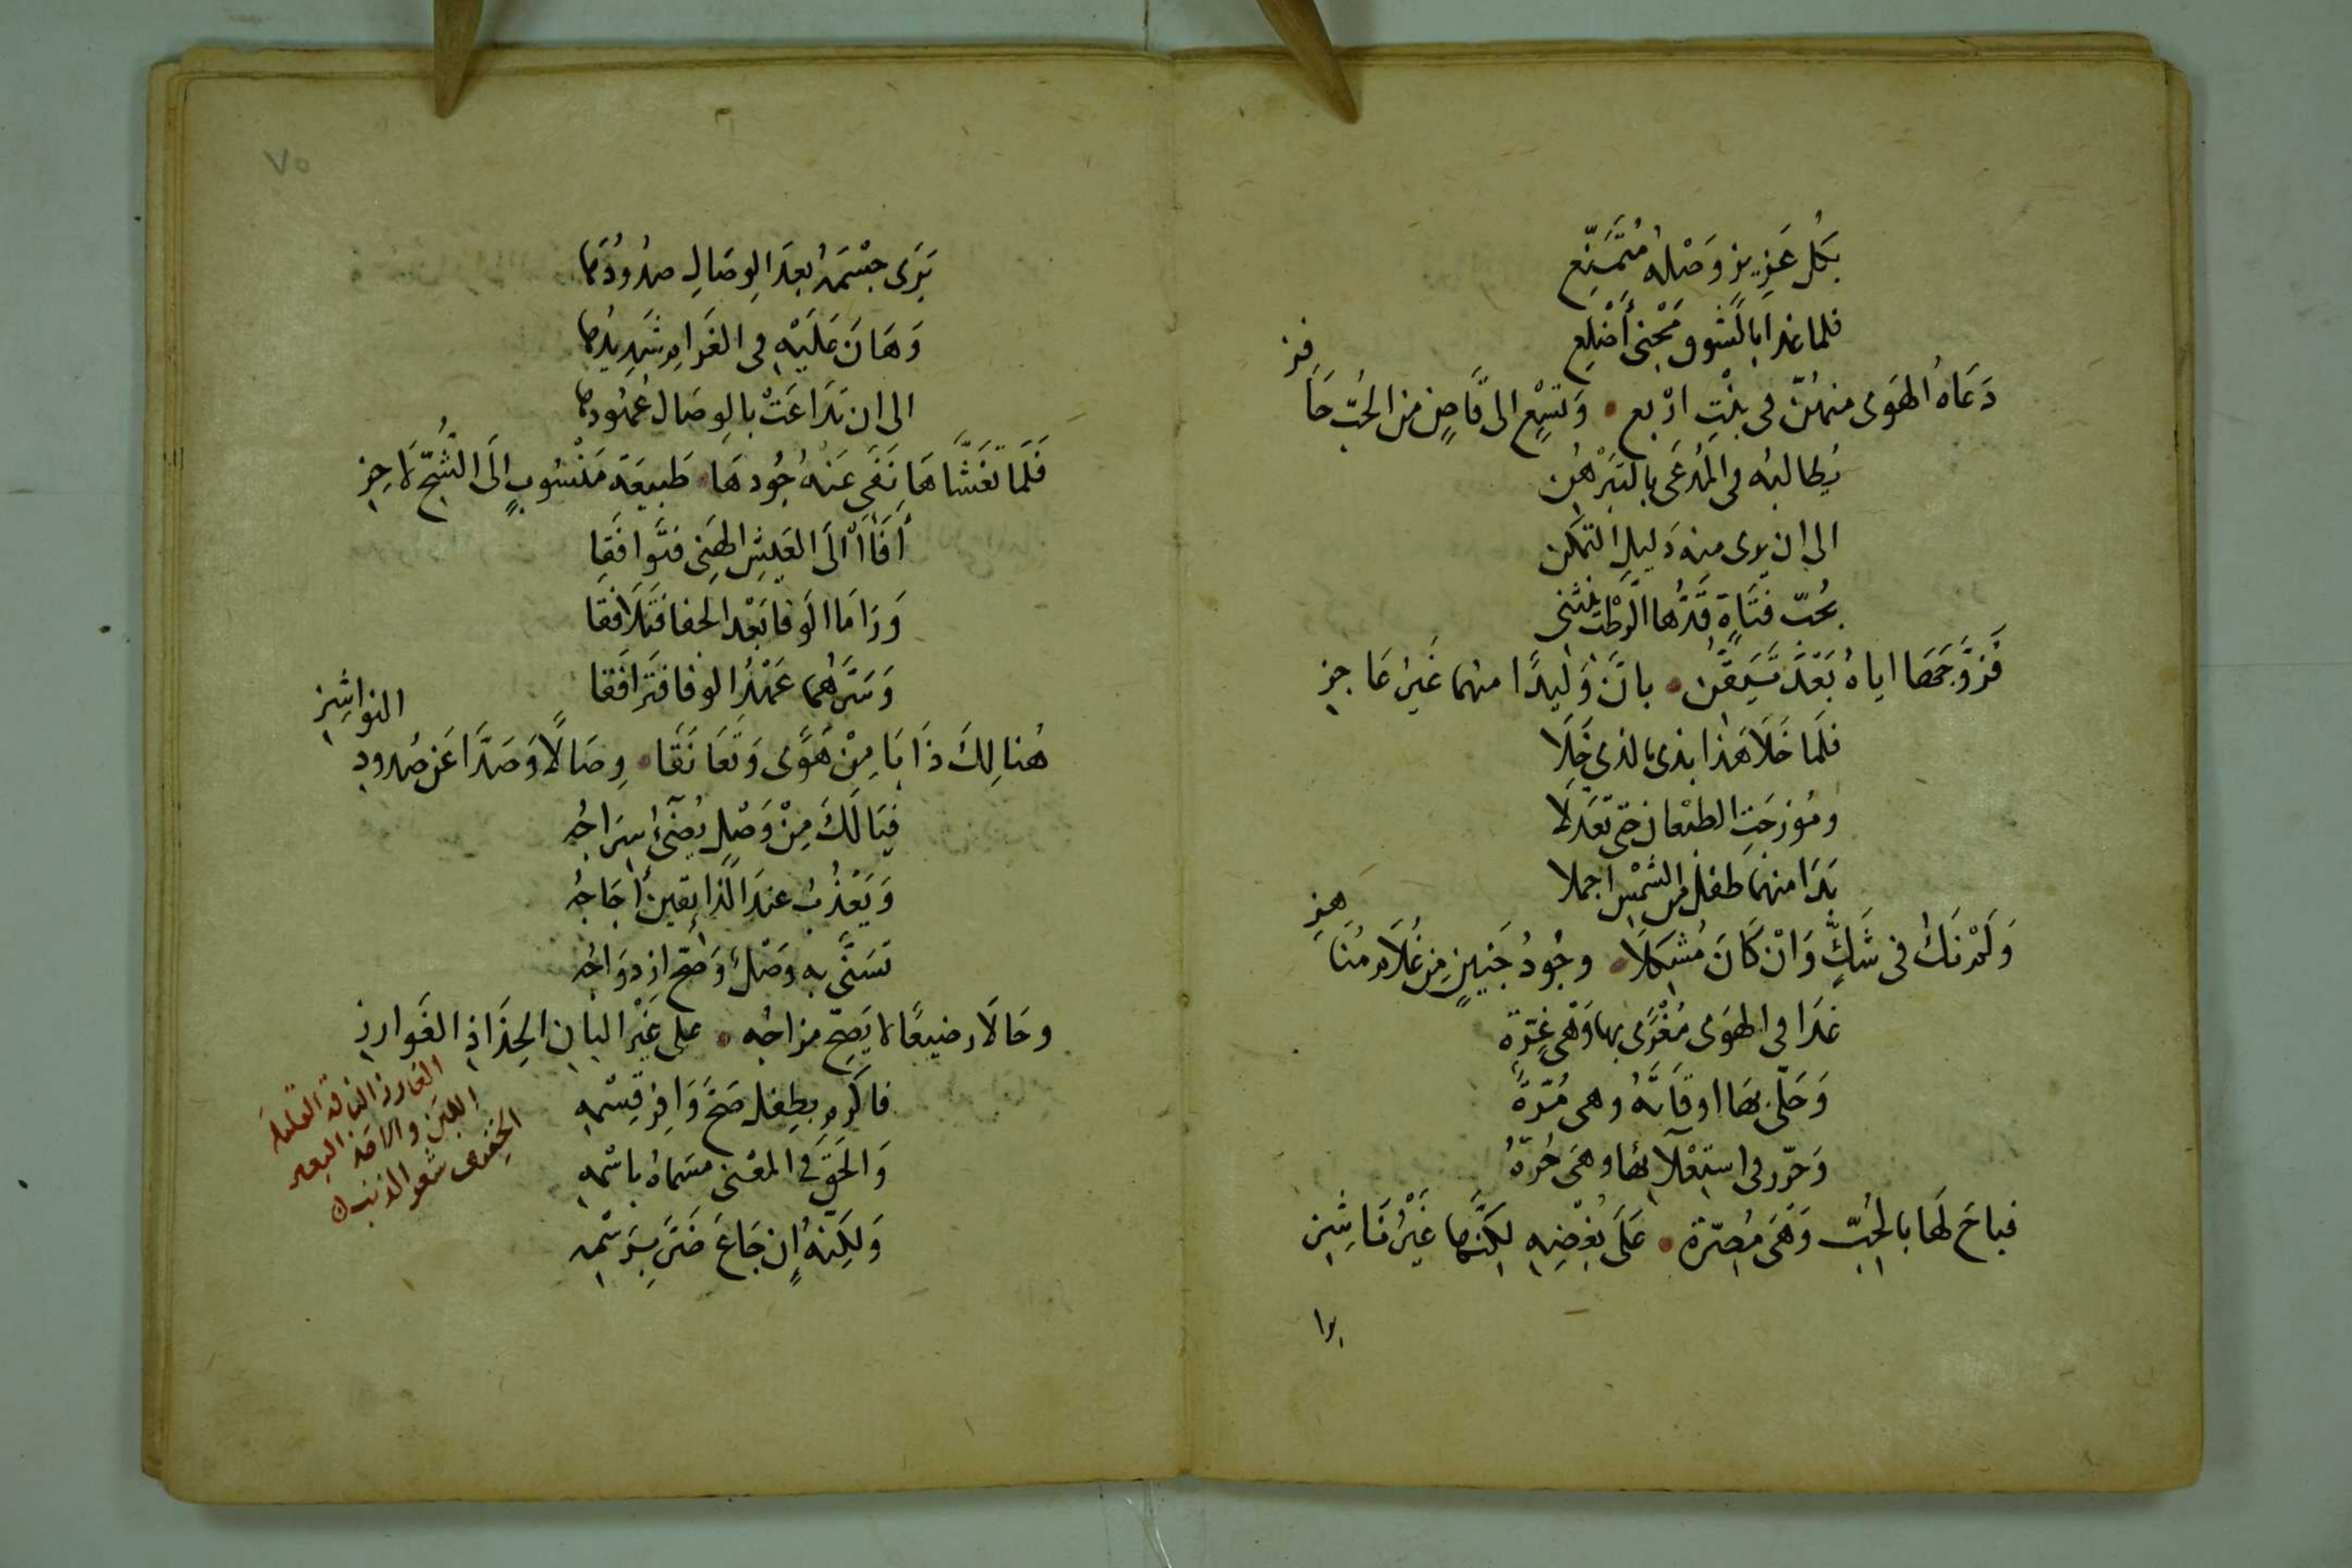 بكل عزيز وصله متمنع
فلما غدا بالشوق محنى أضلع
دَعَاهُ الهَوى منهنّ فى بنْتِ اربع • وَتسْع الى قاصٍ من الحُبّ حَا
فز
يُطالبه فى المدعَى بالتَبَرْهُن
الى ان يرى منه دَليل التمكن
بحُبّ فتَاةٍ قَدُّها الرَّطْبُ ينثنى
فَزوَّجَهَا اياهُ بَعْدَ تَيَقّن • بانّ وَليدًا منهما غَيرُ عَاجِز
فلَما خَلَا هَذا بذى بالذى خَلَا
ومُوزجَتِ الطبْعان حتى تعَدلَا
بَدَا منهمَا طفل من الشمْس اجملا
وَلَمْ نَكُ فى شَكٍّ وَانْ كَانَ مُشكلَا • وجُودُ جَنينٍ مِن غُلَامٍ مُنَا
هز
غدَا فى الهوَى مُغْرًى بها وَهْى غِرّة
وَحَلّى بهَا اوقَاتهُ وهى مُرّةٌ
وَحَرّر فى استعْلَآئها وهَى حُرّةٌ
فباحَ لهَا بالحُبّ وَهَى مُصِرّة • عَلَى بُغْضِه لكنّها غَيْرُ نَاشِز
برا
٧٥
بَرَى جسْمَهُ بعدَ الوصَالِ صدُودُهَا
وَهَانَ عَلَيْهِ فى الغَرَامِ شَدِيدُهَا
الى ان تدَاعَتْ بالوصَال عُهُودهَا
فَلَمّا تَغَشّاهَا نَفَى عَنهُ جُودهَا • طَبيعَة مَنْسُوبٍ إلَى الشُّحّ لاحِز
أفَآأ الَى العَيشِ الهَنى فتَوافَقَا
وَرَامَا الوَفا بَعْدَ الجفا فَتَلَافَقَا
وَسَرّهُما عَهْدُ الوفا فتَرَافَقَا
هُنالِكَ ذَابَا مِنْ هَوًى وَتعَانَقَا • وِصَالًا وَصَدّا عَن صُدود
النواشِز
فيَالَكَ مِنْ وَصْلٍ يُضئُ سِرَاجُه
وَيَعْذُبُ عندَ الذَّائقينَ أجَاجُه
تَسَنّى به وَصْلٌ وَصَحّ ازدوَاجُه
وحَالَا رضيعًا لا يَصِحّ مزاجُه • على غَيْر البان الحِذَاذِ الغَوارز
الغارز الناقة القليلة
اللبن
فاكْرم بطِفل صَحّ وَافِرُ قِسْمِه
وَالحَقّ فى المعْنى مسَماهُ باسْمِه
وَلكِنهُ إن جَاعَ ضَنّ بِرَسْمِه